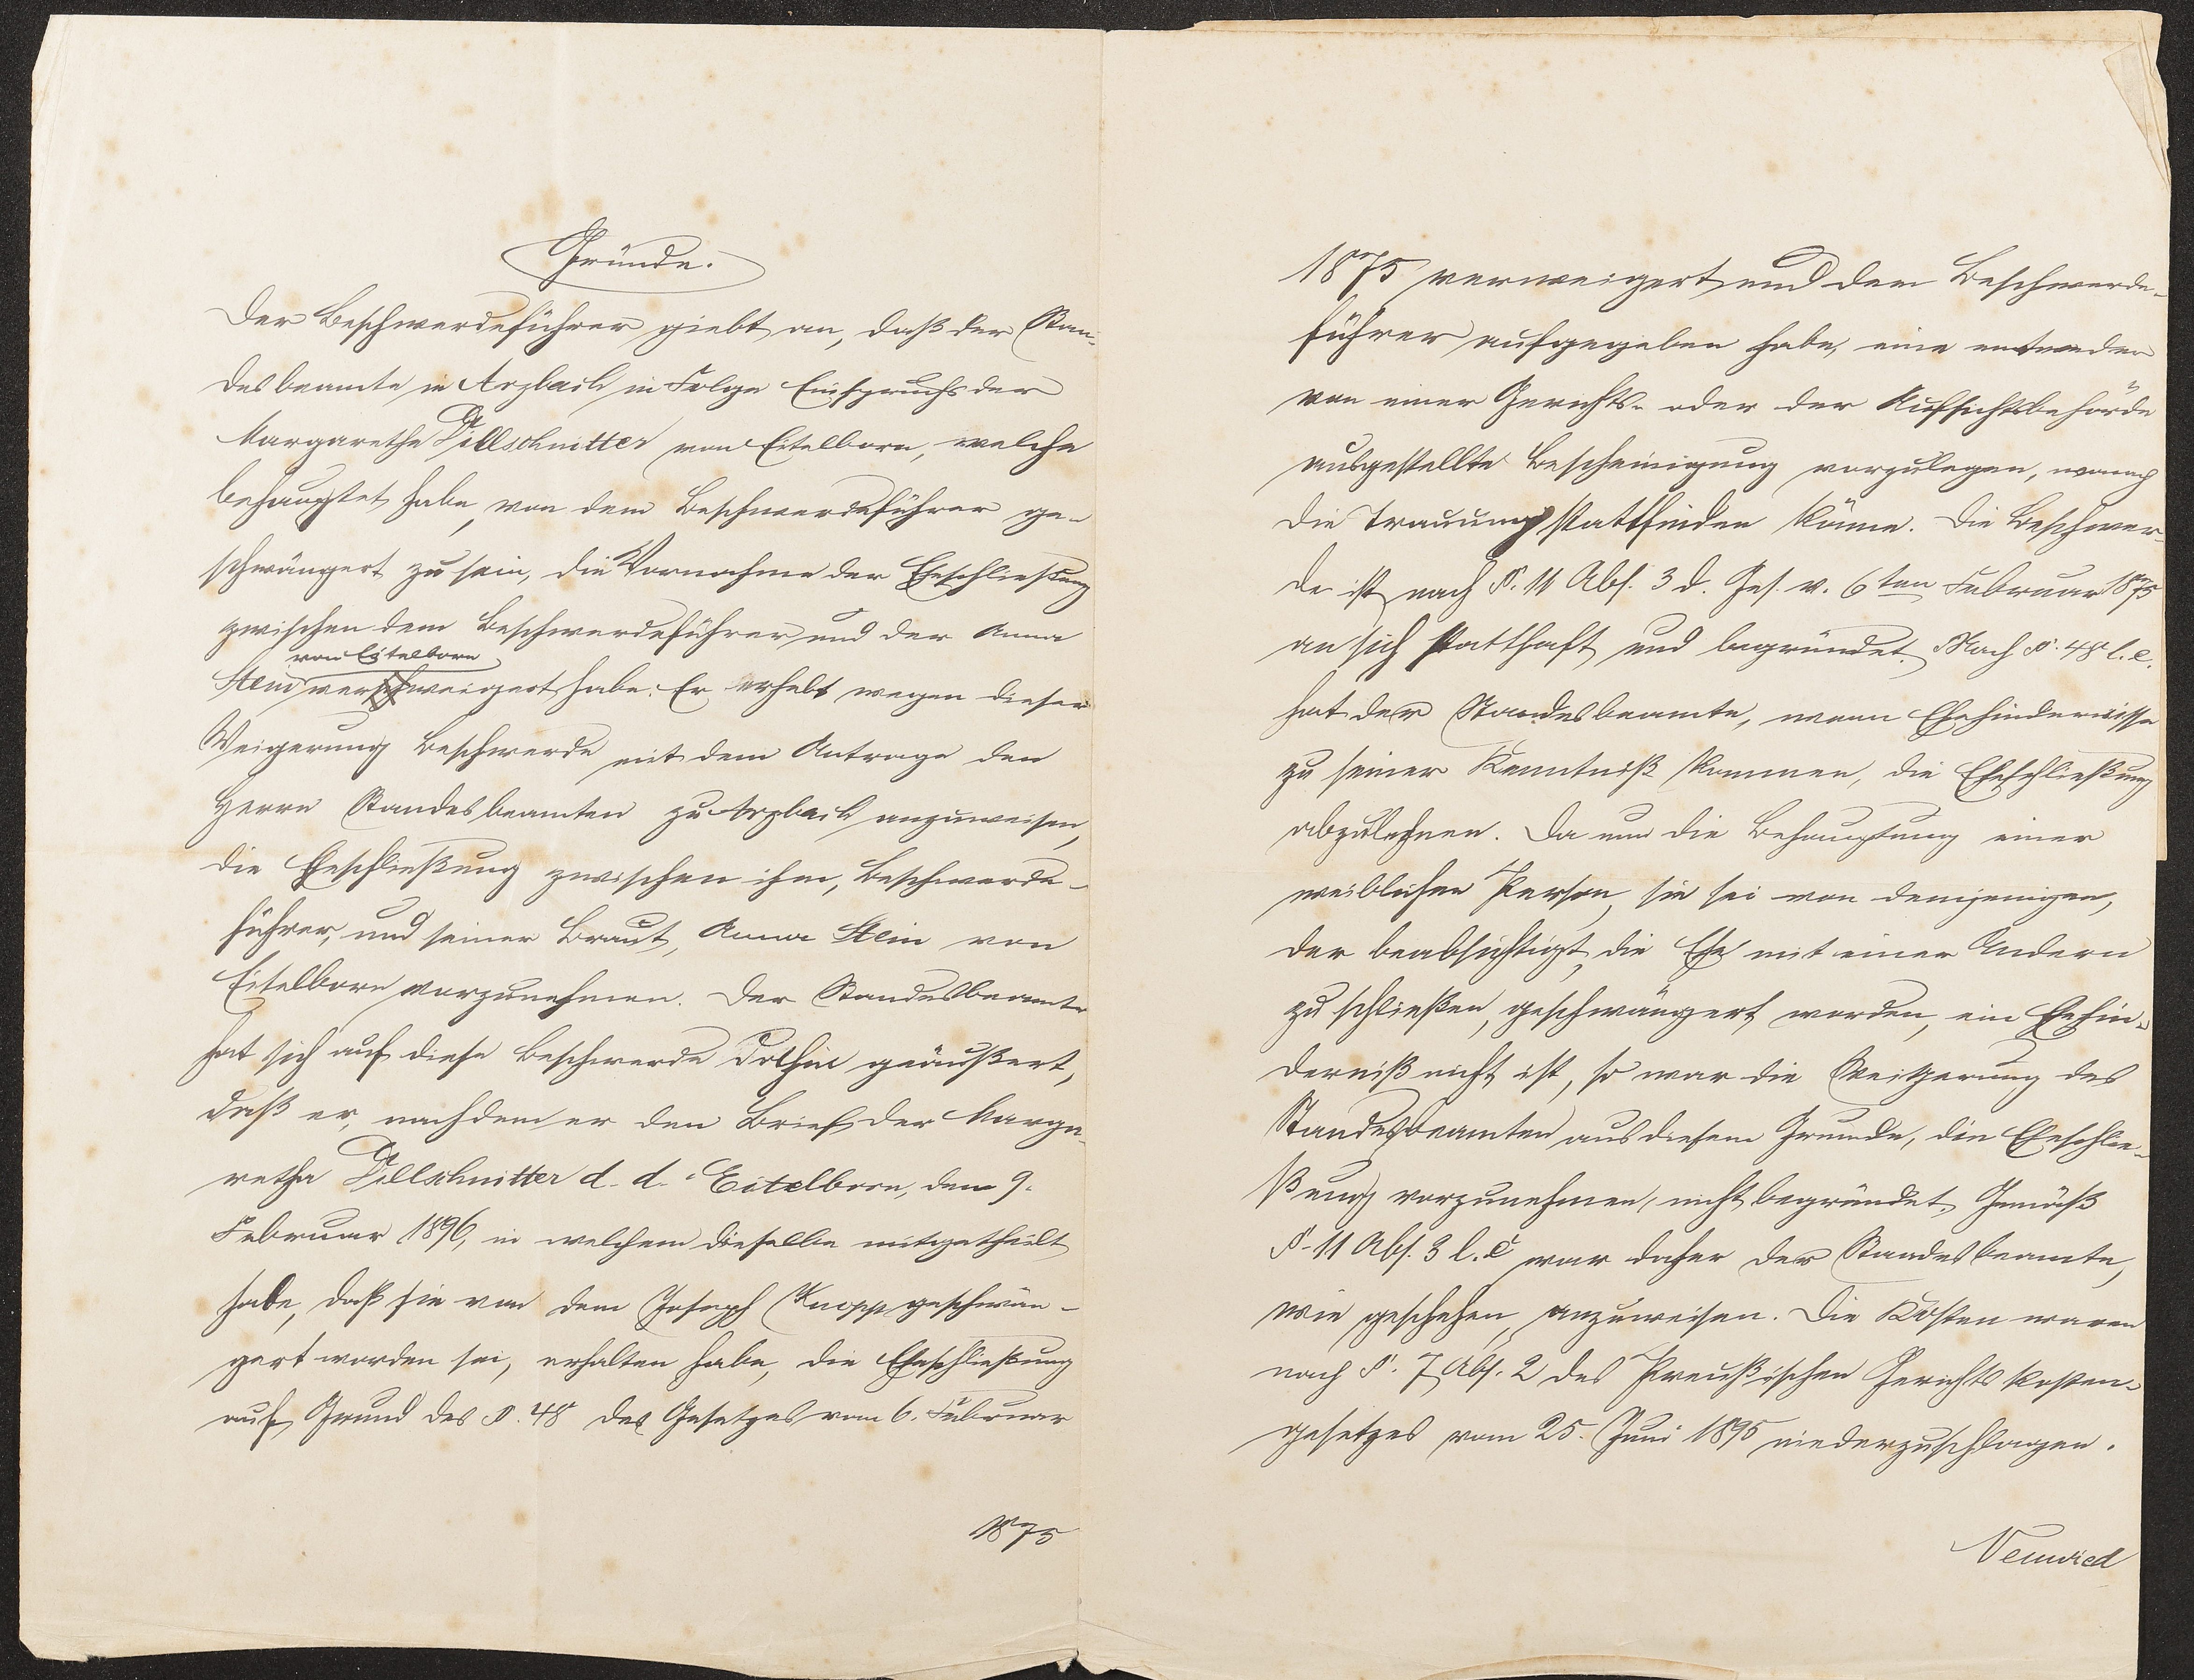 Gründe.
Der Beschwerdeführer giebt an, daß der Stan-
desbeamte in Arzbach in Folge Einspruchs der
Margaretha Dillschnitter von Eitelborn, welche
behauptet habe, von dem Beschwerdeführer ge-
schwängert zu sein, die Vornahme der Eheschließung
zwischen dem Beschwerdeführer und der Anna
von Eitelborn
Stein verweigert habe. Er erhebt wegen dieser
Weigerung Beschwerde mit dem Antrage den
Herrn Standesbeamten zu Arzbach anzuweisen,
die Eheschließung zwischen ihm, Beschwerde-
führer, und seiner Braut, Anna Stein von
Eitelborn vorzunehmen. Der Standesbeamte
hat sich auf diese Beschwerde dahin geäußert,
daß er, nachdem er den Brief der Marga-
retha Dillschnitter d. d. Eitelborn, den 9.
Februar 1896, in welchem dieselbe mitgetheilt
habe, daß sie von dem Joseph Knopp geschwän-
gert worden sei, erhalten habe, die Eheschließung
auf Grund des §. 48 des Gesetzes vom 6. Februar
1875
1875 verweigert und dem Beschwerde-
führer aufgegeben habe, eine entweder
von einer Gerichts- oder der Aufsichtsbehörde
ausgestellte Bescheinigung vorzulegen, wonach
die Trauung stattfinden könne. Die Beschwer-
de ist nach §. 11 Abs. 3 d. Ges. v. 6ten Februar 1875
an sich statthaft und begründet. Nach §. 48 l. c.
hat der Standesbeamte, wenn Ehehindernisse
zu seiner Kenntniß kommen, die Eheschließung
abzulehnen. Da nun die Behauptung einer
weiblichen Person, sie sei von demjenigen,
der beabsichtigt, die Ehe mit einer Andern
zu schließen, geschwängert worden, ein Ehehin-
derniß nicht ist, so war die Weigerung des
Standesbeamten aus diesem Grunde, die Eheschlie-
ßung vorzunehmen, nicht begründet. Gemäß
§. 11 Abs. 3 l. c. war daher der Standesbeamte,
wie geschehen, anzuweisen. Die Kosten waren
nach §. 7 Abs. 2 des Preußischen Gerichtskosten-
gesetzes vom 25. Juni 1895 niederzuschlagen.
Neuwied